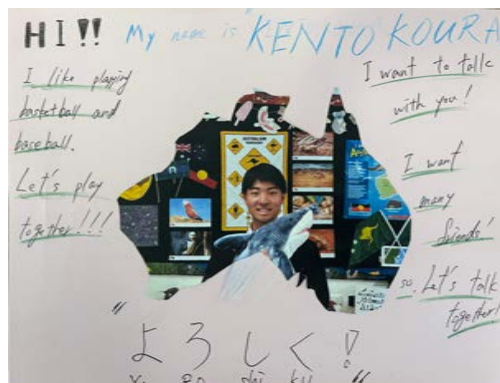 HI!! My name is KENTO KOURA
I like playing
basketball and
baseball.
Let's play
together!!!
I want to talk
with you!
I want
many
friends!
so. Let's talk
together!
"よろしく!"
yo ro shi ku